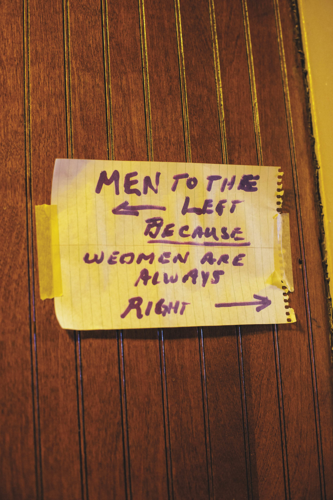 MEN TO THE
← LEFT
BECAUSE
WEOMEN ARE
ALWAYS
RIGHT →